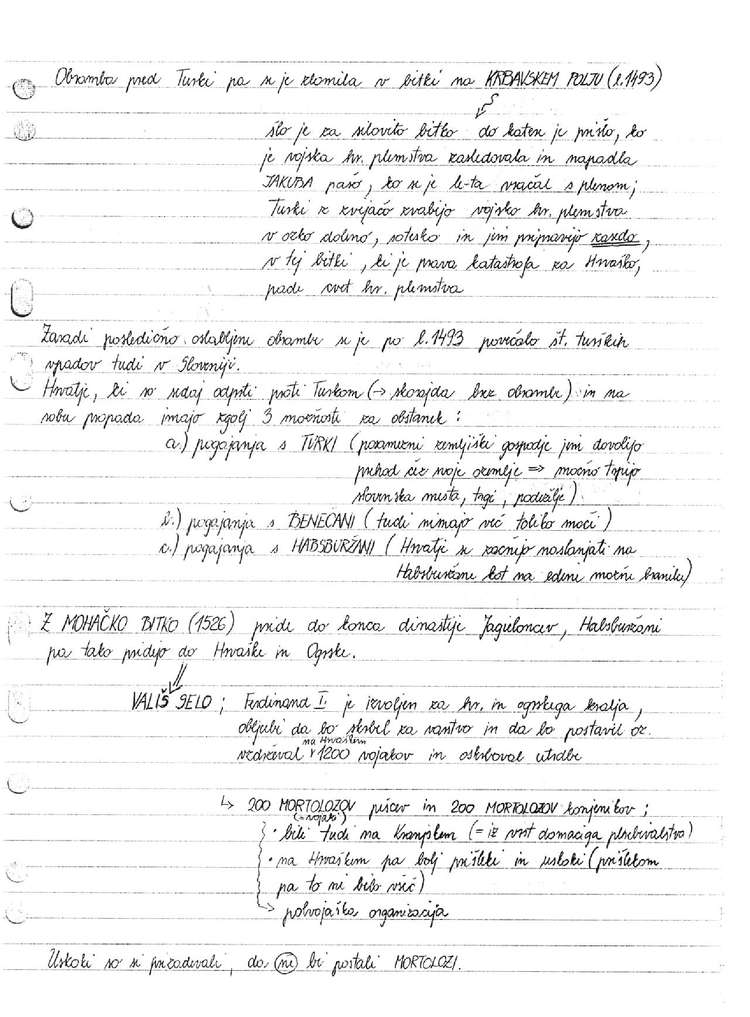 Obramba pred Turki pa se je zlomila v bitki na KRBAVSKEM POLJU (l.1493)
šlo je za silovito bitko do katere je prišlo, ko
je vojska hr. plemstva zasledovala in napadla
JAKUBA pašo, ko se je le-ta vračal s plenom;
Turki z zvijačo zvabijo vojsko hr. plemstva
v ozko dolino, sotesko in jim pripravijo zasedo,
v tej bitki, ki je prava katastrofa za Hrvaško,
pade cvet hr. plemstva
Zaradi posledično oslabljene obrambe se je po l.1493 povečalo št. turških
vpadov tudi v Sloveniji.
Hrvatje, ki so sedaj odprti proti Turkom (→ skorajda brez obrambe) in na
robu propada imajo zgolj 3 možnosti za obstanek :
a.) pogajanja s TURKI (posamezni zemljiški gospodje jim dovolijo
prehod čez svoje ozemlje ⇒ močno trpijo
slovenska mesta, trgi, podeželje)
b.) pogajanja s BENEČANI (tudi nimajo več toliko moči)
c.) pogajanja s HABSBURŽANI (Hrvatje se začnejo naslanjati na
Habsburžane kot na edine možne branilce)
Z MOHAČKO BITKO (1526) pride do konca dinastije Jageloncev, Habsburžani
pa tako pridejo do Hrvaške in Ogrske.
VALIŠ SELO ; Ferdinand I. je izvoljen za hr. in ogrskega kralja,
obljubi da bo skrbel za varstvo in da bo postavil oz.
na Hrvaškem
vzdrževal 1200 vojakov in oskrboval utrdbe
↳ 200 MORTOLOZOV pešcev in 200 MORTOLOZOV konjenikov ;
(=vojaki)
• bili tudi na Kranjskem (= iz vrst domačega prebivalstva)
• na Hrvaškem pa bolj prišleki in uskoki (prišlekom
pa to ni bilo všeč)
→ polvojaška organizacija
Uskoki so si prizadevali, da ne bi postali MORTOLOZI.